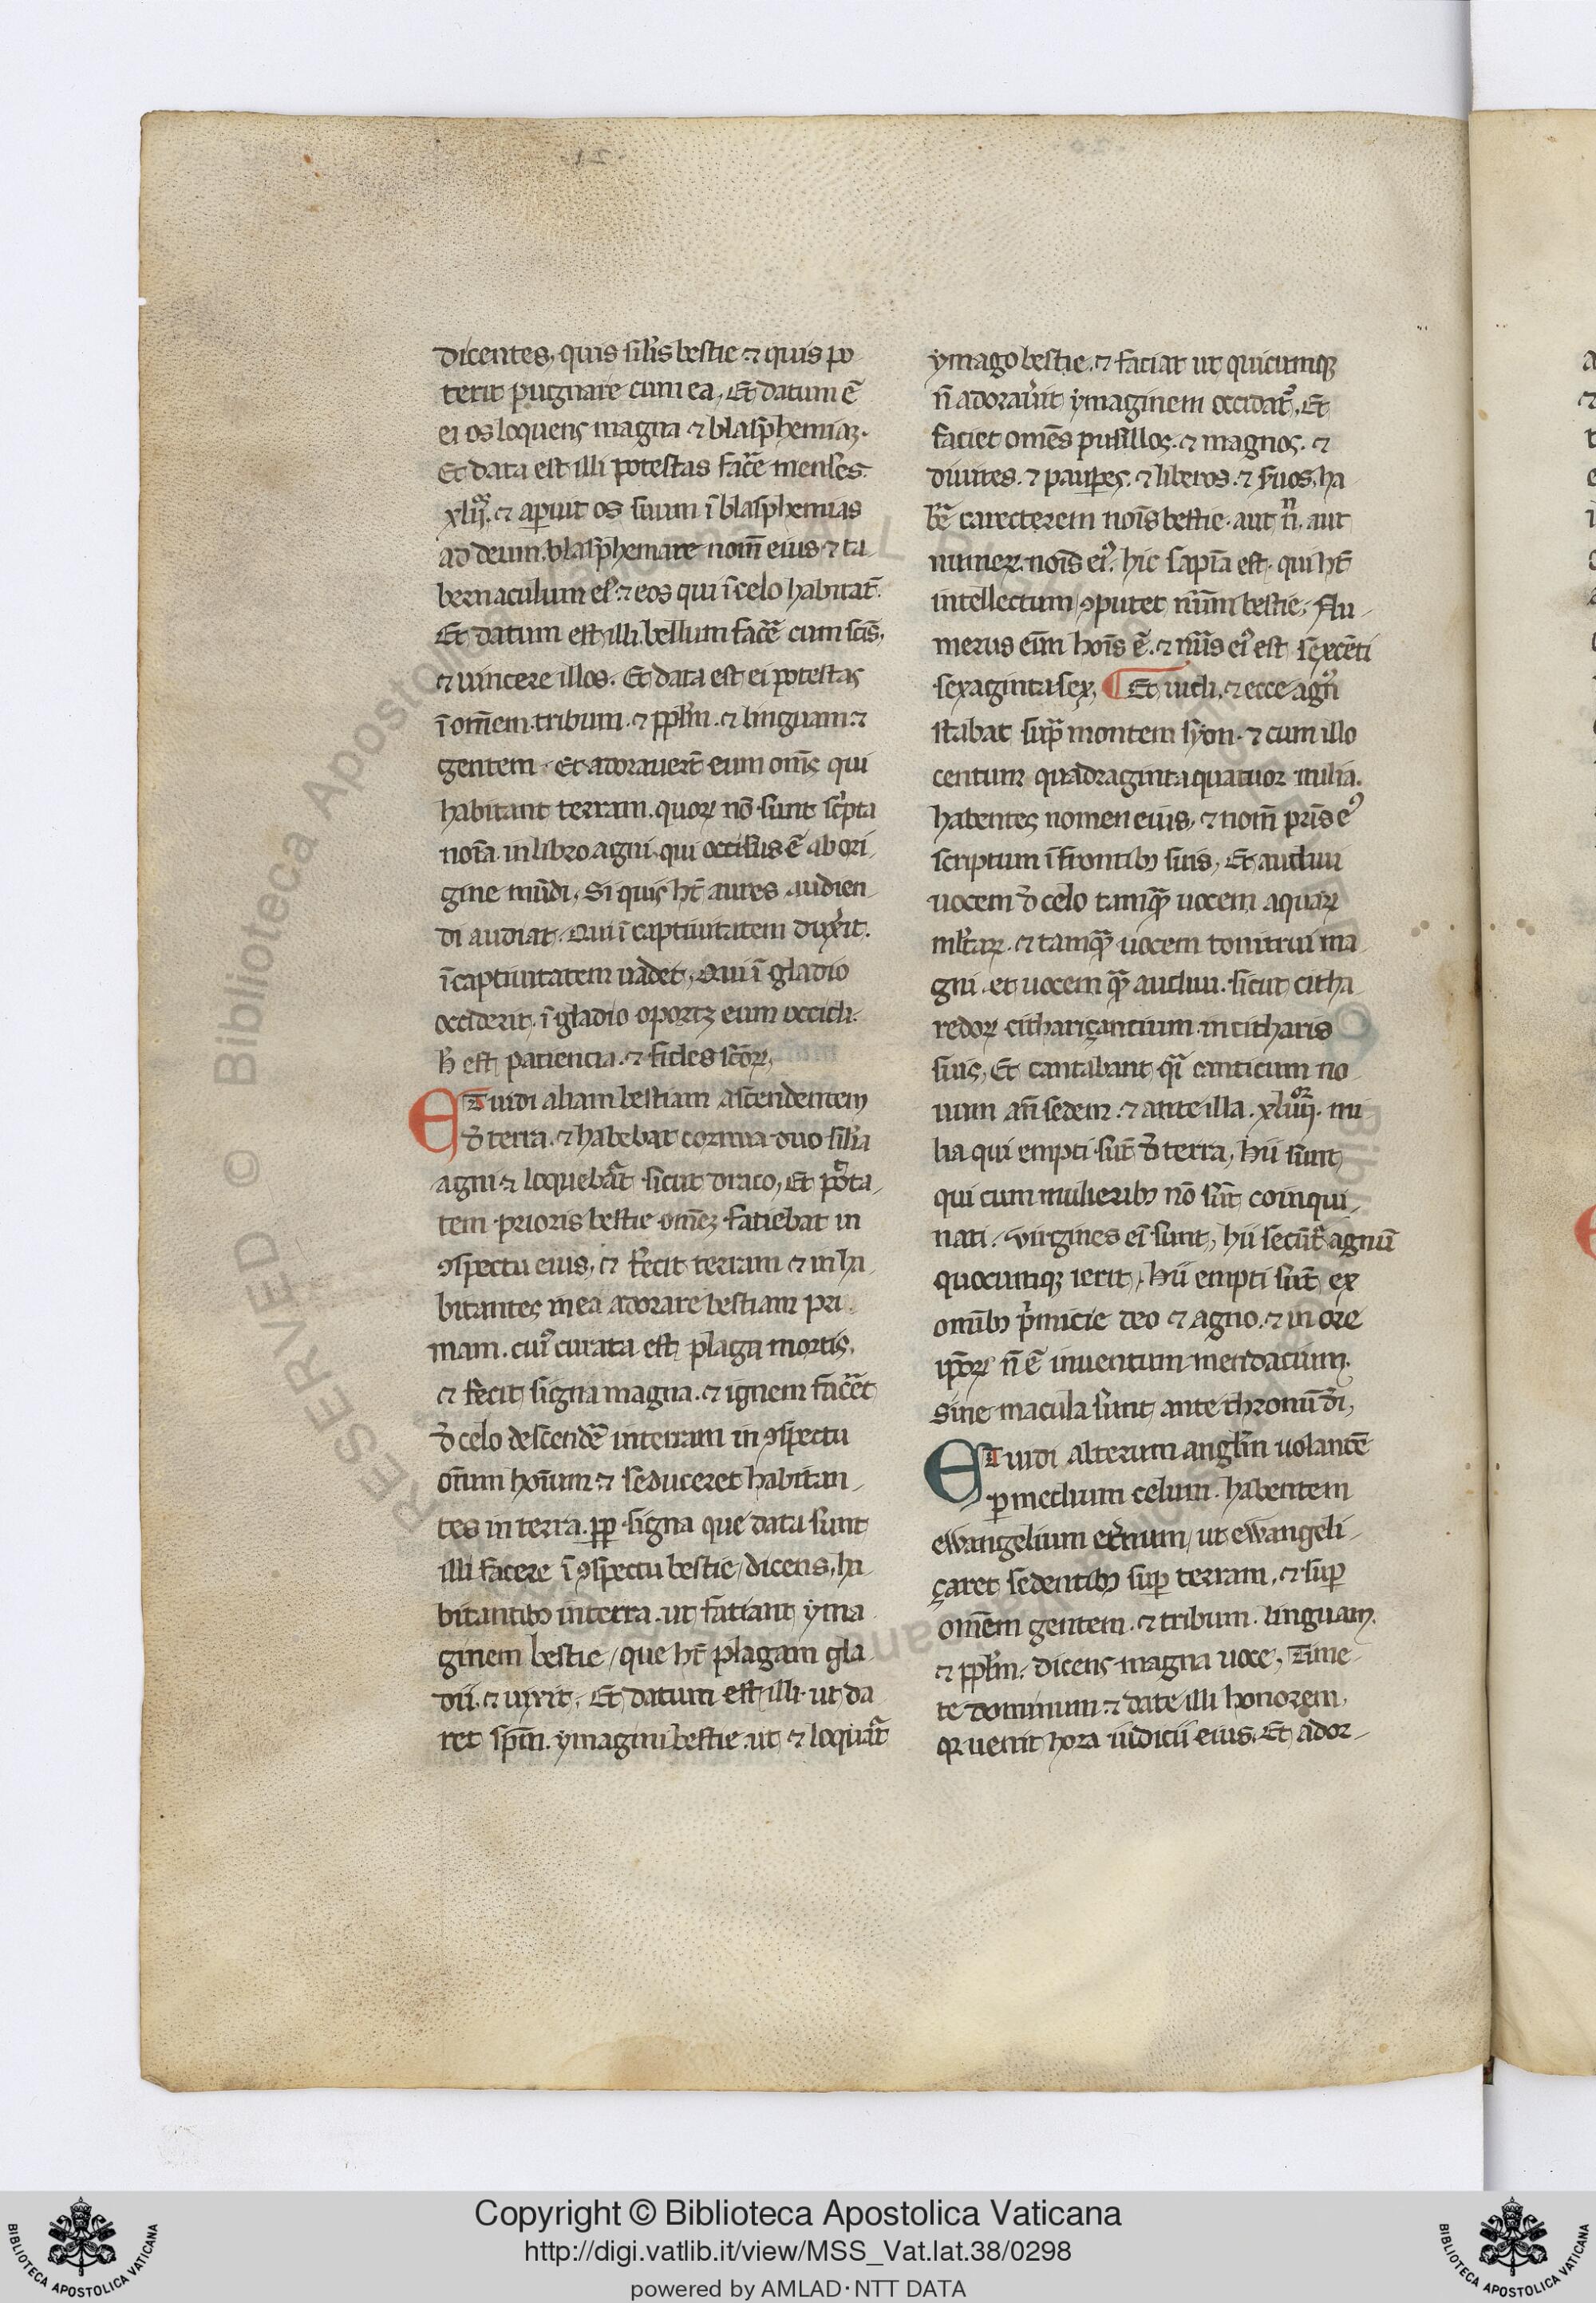 dicentes, quis silis bestie ⁊ quis po
terit pugnare cum ea, Et datum ē
ei os loquens magna ⁊ blasphemias.
Et data est illi potestas facē menses
xlij. ⁊ aperuit os suum ī blasphemias
ad deum. blasphemare nom̄ eius ⁊ ta
bernaculum ei᾽ ⁊ eos qui ī celo habitāt.
Et datum est illi bellum facē cum sc̄is,
⁊ uincere illos. Et data est ei potestas
ī om̄em tribum. ⁊ pplm̄. ⁊ linguam ⁊
gentem. Et adorauerт̄ eum om̄s qui
habitant terram. quoꝝ nō sunt scͥpta
noīa in libro agni. qui occisus ē ab ori
gine mūdi, Si quis ht̄ aures audien
di audiat. Qui ī captiuitatem duxerit.
ī captiuitatem uadet, Qui ī gladio
occiderit. ī gladio oportꝫ eum occidi.
h̄ est paciencia. ⁊ fides sc̄oꝝ,
ET uidi aliam bestiam ascendentem
đ terra. ⁊ habebat cornua duo sil̄ia
agni ⁊ loquebat᷑ sicut draco, Et pot̄a
tem prioris bestie omēs fatiebat in
ꝯspectu eius, ⁊ fecit terram ⁊ inha
bitantes in ea adorare bestiam pri
mam. cui᾽ curata est plaga mortis,
⁊ fecit signa magna. ⁊ ignem facēt
đ celo descendē in terram in ꝯspectu
om̄um hoīum ⁊ seduceret habitan
tes in terra. ꝓp signa que data sunt
illi facere ī ꝯspectu bestie, dicens, ha
bitantibꝫ in terra. ut fatiant yma
ginem bestie, que ht̄ plagam gla
dii. ⁊ uixit, Et datum est illi ut da
ret sp̄m. ymagini bestie. ut ⁊ loquat᷑
ymago bestie, ⁊ faciat ut quicumqꝫ
n̄ adorau̓it ymaginem occidat᷑, Et
faciet omēs pusillos. ⁊ magnos. ⁊
diuites. ⁊ paupes. ⁊ liberos. ⁊ s̓uos, ha
bē carecterem noīs bestie. aut n̄. aut
numeꝝ noīs ei᾽. hic sapīa est. qui ht̄
intellectum ꝯputet num̄ bestie, Nu
merus eīm hoīs ē. ⁊ nūs ei᾽ est sexcēti
sexaginta sex, ¶ Et uidi, ⁊ ecce agn᾽
stabat sup̄ montem syon. ⁊ cum illo
centum quadraginta quatuor milia.
habentes nomen eius, ⁊ nom̄ p̄ris ei᾽
scriptum ī frontibꝫ suis, Et audiui
uocem đ celo tamqᷓ uocem aquaꝝ
ml̄taꝝ. ⁊ tamqᷓ uocem tonitrui ma
gni. et uocem qᷓ audiui. sicut citha
redoꝝ citharicantium in citharis
suis, Et cantabant qͣi canticum no
uum an̄ sedem. ⁊ ante illa. xliiij. mi
lia qui empti sūt đ terra, hii sunt
qui cum mulieribꝫ nō sūt coinqui
nati. uirgines eī sunt, hii secūt᷑ agnū
quocumqꝫ ierit, hii empti sūt ex
omībꝫ pͥmicie deo ⁊ agno, ⁊ in ore
ip̄oꝝ n̄ ē inuentum mendacium.
Sine macula sunt ante thronū đi,
ET uidi alterum angl̄m uolantē
ꝑ medium celum. habentem
ewangelium et̓num, ut ewangeli
çaret sedentibꝫ suꝑ terram, ⁊ suꝑ
om̄em gentem. ⁊ tribum. linguam.
⁊ pplm̄. dicens magna uoce, Time
te dominum ⁊ date illi honorem,
qꝛ uenit hora iudicii eius, Et ador
Copyright © Biblioteca Apostolica Vaticana
http://digi.vatlib.it/view/MSS_Vat.lat.38/0298
powered by AMLAD·NTT DATA